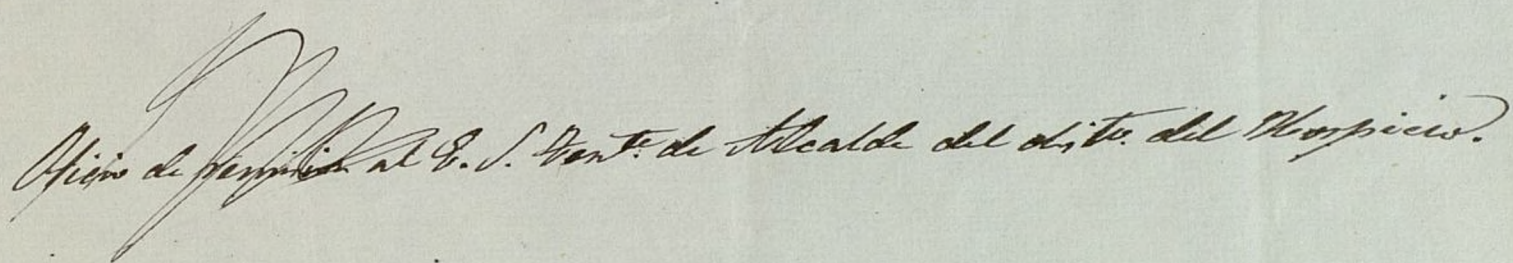 Oficio de remisión al E. S. Tente. de Alcalde del disto. del Hospicio.